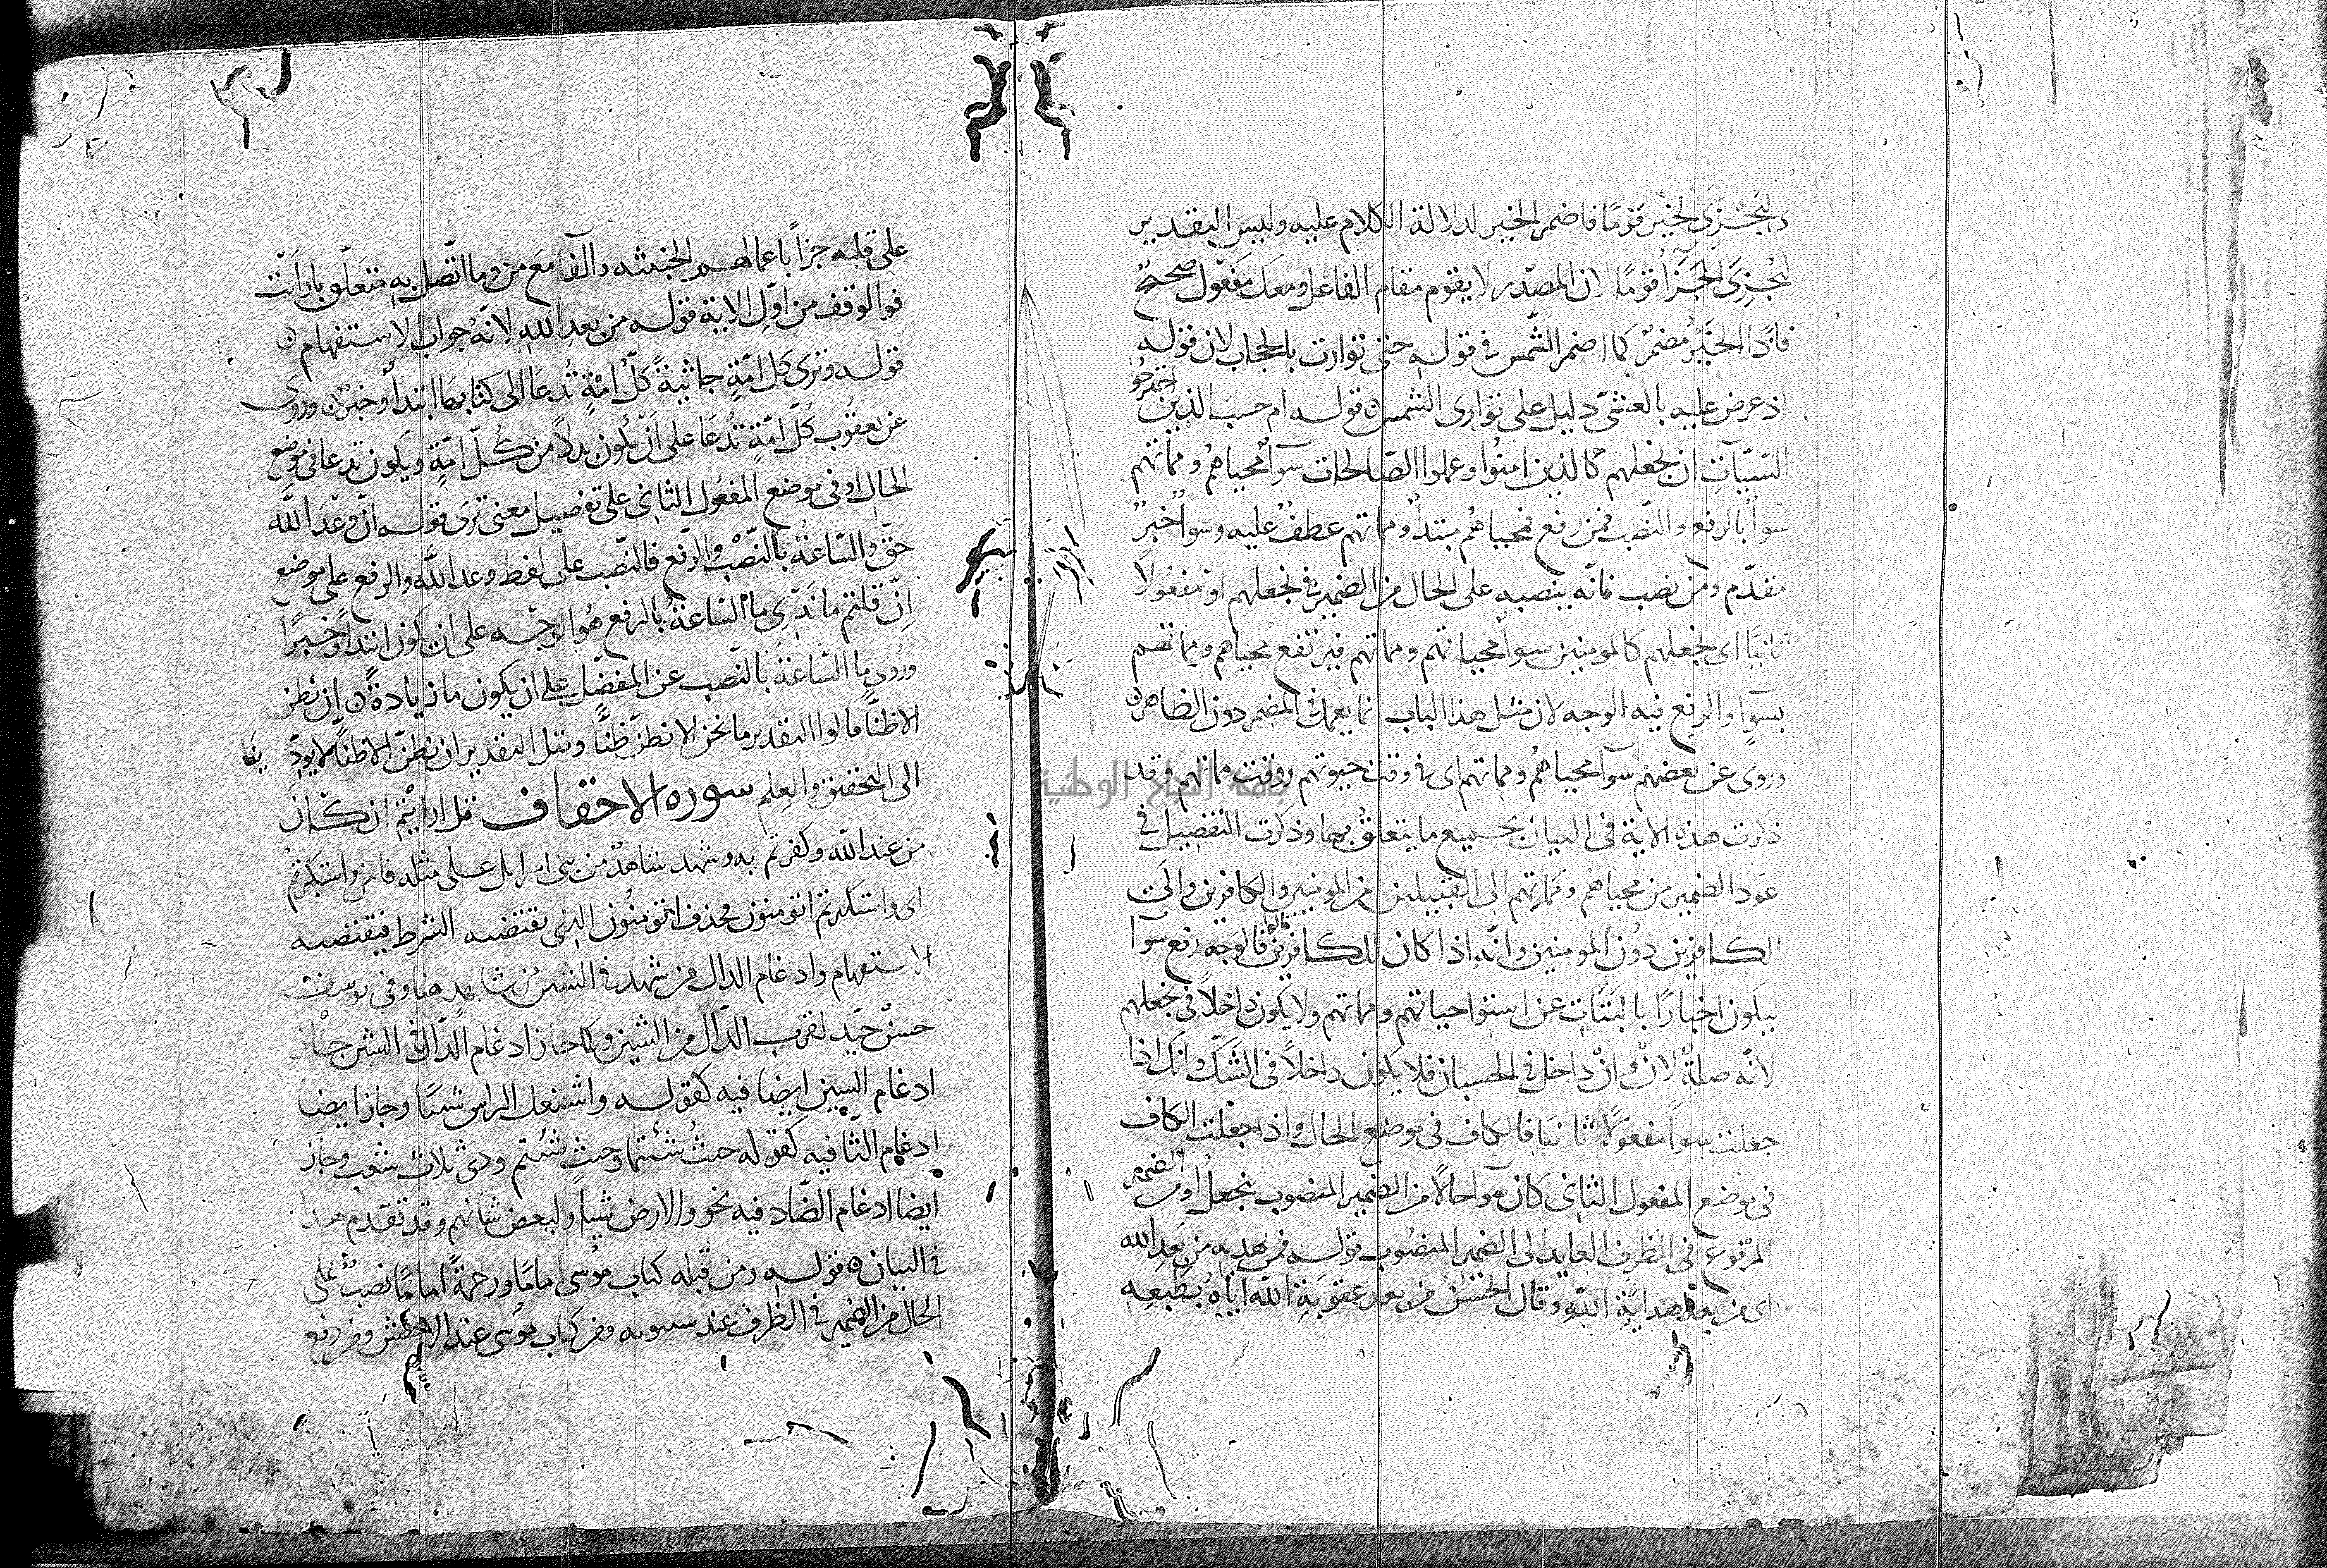 اى ليُجْزَى الخَيْر قومًا فاضمر الخير لدلالة الكلام عليه وليس التقدير
ليُجْزَى الجَزَآُ قومًا لان المصدر لا يقوم مقام الفاعل ومعك مفعول صحيح
فاذا الخَيْرُ مضمرٌ كما اضمر الشّمس فى قوله حتى توارت بالحجاب لان قوله
اذ عرض عليه بالعشىّ دليل على توارى الشمس ۞ قوله ام حسبَ الذين اجترحُوا
السّيّآتِ ان نجعلهم كالذين امنُوا وعملوا الصّالحات سوآً محياهم ومماتهم
سوآ بالرفع والنّصب فمن رفع فمحياهُم مبتدأ ومماتهم عطفٌ عليه وسوآ خبرٌ
مقدّم ومن نصب فانّه ينصبه على الحال من الضمير فى نجعلهم او مفعُولًا
ثانيًا اى نجعلهم كالمومنين سوآ محياهم ومماتهم فيرتفع محياهم ومماتهم
بسوآٍ والرفع فيه الوجه لان مثل هذا الباب انما يعمل فى المضمر دون الظاهر ۞
وروى عن بعضهم سوآ محياهُم ومماتهم اى فى وقت حيوتهم ووقت مماتهم وقد
ذكرت هذه الاية فى البيان بجميع ما يتعلق بها وذكرت التفضيل فى
عَود الضمير من محياهُم ومَماتِهم الى القبيلين من المومنين والكافرين والى
الكافرين دُون المومنين وانّه اذا كان للكافرين فالوَجه رفع سوآ
ليكون اخبارًا بالبَتَات عن استوا حياتهم ومماتهم ولا يكون داخلًا فى نجعلهم
لانّه صلةٌ لانْ وانْ داخل فى الحسبان فلا يكون داخلًا فى الشّكّ وانك اذا
جعلت سوآً مفعولًا ثانيًا فالكاف فى موضع الحال واذا جعلت الكاف
فى موضع المفعول الثانى كان سوآ حالًا من الضمير المنصوب بنجعلُ او من الضمير
المرفوع فى الظرف العايد الى الضمير المنصُوب قوله فمن يهديه من بَعدِ الله
اى من بعد هدايَةِ اللهِ وقال الحسنُ من بعد عقوبَةِ الله اياهُ بطبعِه
على قلبه جزآً باعمالهم الخبيثه والفآ مع من وما اتّصل به متعلّق بارَايت
فالوقف من اوّل الاية قوله من بعد الله لانّه جواب الاستفهام ۞
قوله وترى كل امّةٍ جاثيةً كلُّ امّةٍ تُدعَا الى كتابها ابتدأٌ وخبرٌ ۞ وروى
عن يعقُوب كُلَّ امّةٍ تُدعَا على اَنْ يكون بدلًا من كُلّ امّةٍ ويكون تدعا فى موضع
الحال او فى موضع المفعُول الثانى على تفصيل معنى ترى قوله انّ وعدَ اللّه
حقّ والسّاعةُ بالنّصْب والرّفع فالنّصب على لفظ وعد اللّه والرفع على موضع
اِنّ قلتم ما نَدرى ما السّاعةُ بالرفع هُو الوجه على ان يكون ابتدأً وخبرًا
ورُوى ما السّاعةَ بالنّصب عن المفضّل على ان يكون ما زيادةً ۞ ان نظن
الا ظنًّا قالوا التقدير ما نحن الا نظنّ ظنًّا وقيل التقدير ان نظنّ الا ظنًّا لا يودّينا
الى التحقيق والعِلم سوره الاحقاف قل ارايتم ان كان
من عند اللّه وكفرتم به وشهد شاهدٌ من بنى اسرايل على مثله فامن واستكبرتم
اى واستكبرتم اتومنون فحذف اتومنُون الذى يقتضيه الشرط فيقتضيه
الاستفهام وادغام الدال من شهد فى الشين من شاهد هنا وفى يوسف
حسنٌ جيّد لقرب الدّال من الشين وكما جاز ادغام الدّال فى الشين جاز
ادغام السين ايضا فيه كقوله واشتعل الراس شيبًا وجاز ايضا
ادغام الثّا فيه كقوله حيثُ شئتما وحيث شئتم وذى ثلاث شعب وجاز
ايضا ادغام الضّاد فيه نحو والارض شيا ولبعض شانهم وقد تقدم هذا
فى البيان ۞ قوله ومن قبله كتاب مُوسى امامًا ورحمةً امامًا نصبٌ على
الحال من الضمير فى الظرف عند سيبويه ومن كتاب موسى عند الاخفش ومن رفع
جامعة النجاح الوطنية